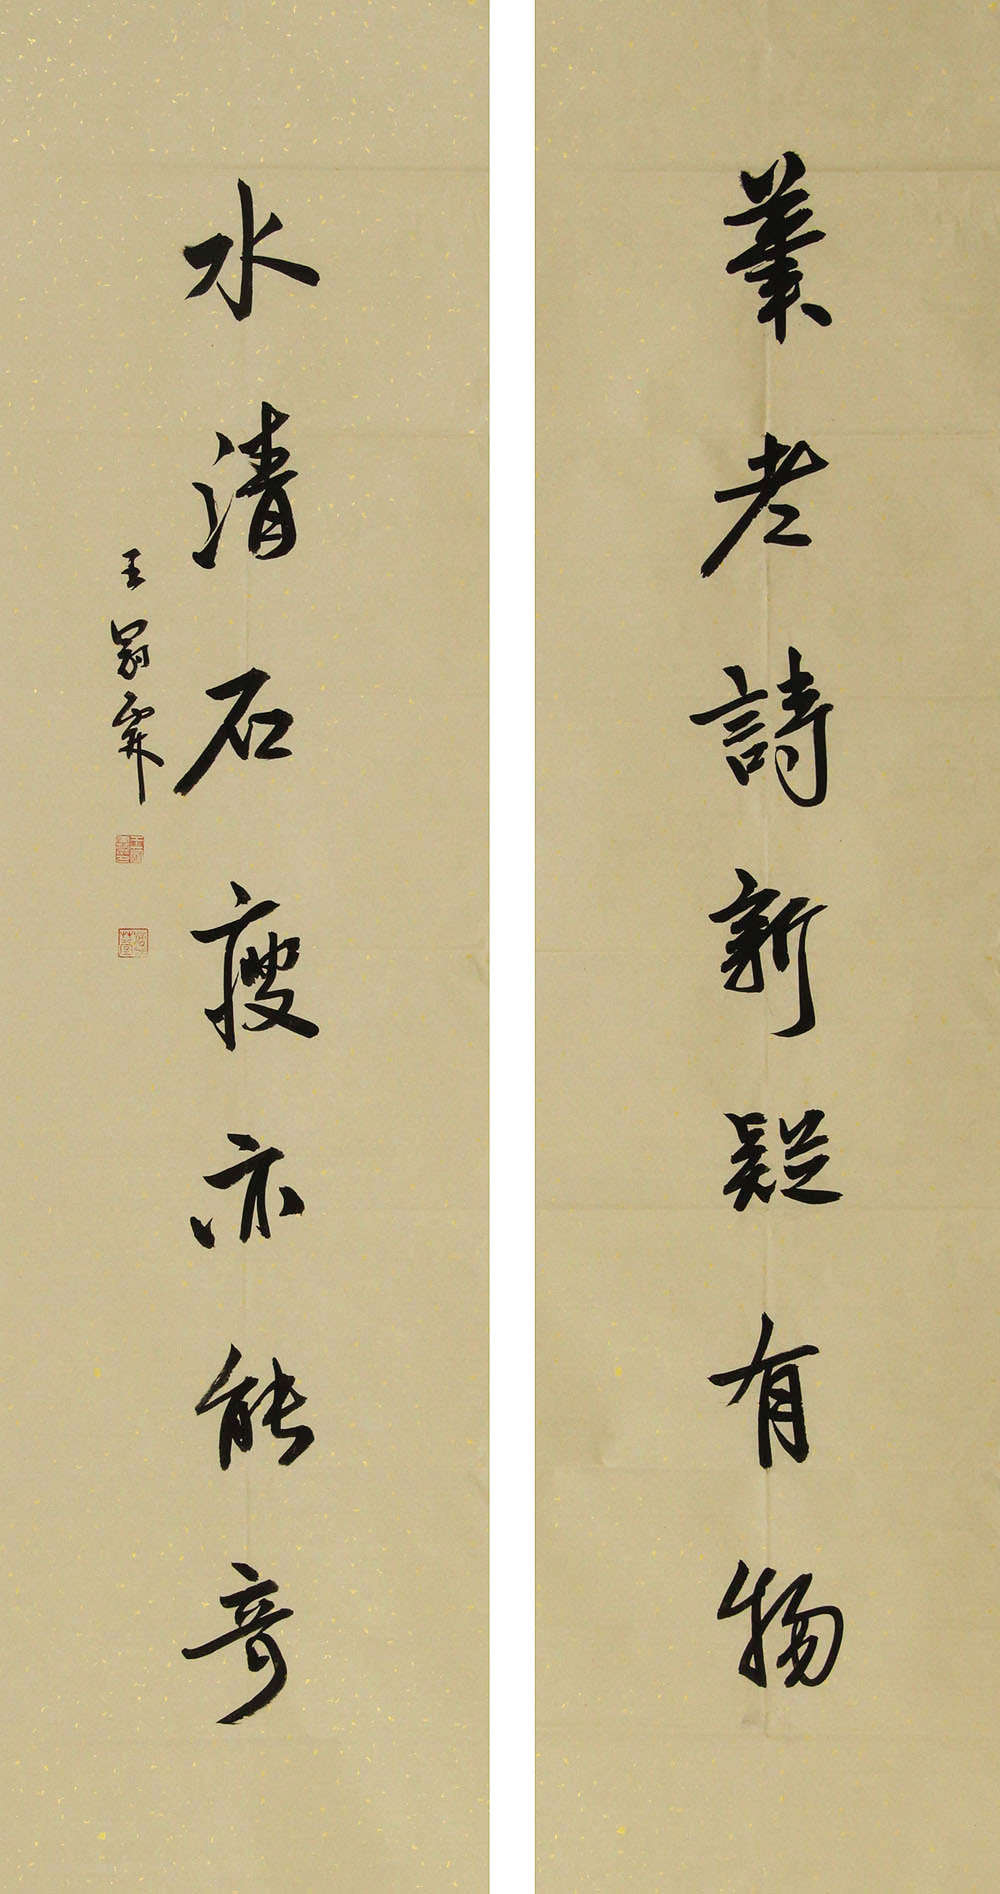 業老詩新疑有物
水清石瘦亦能奇
王